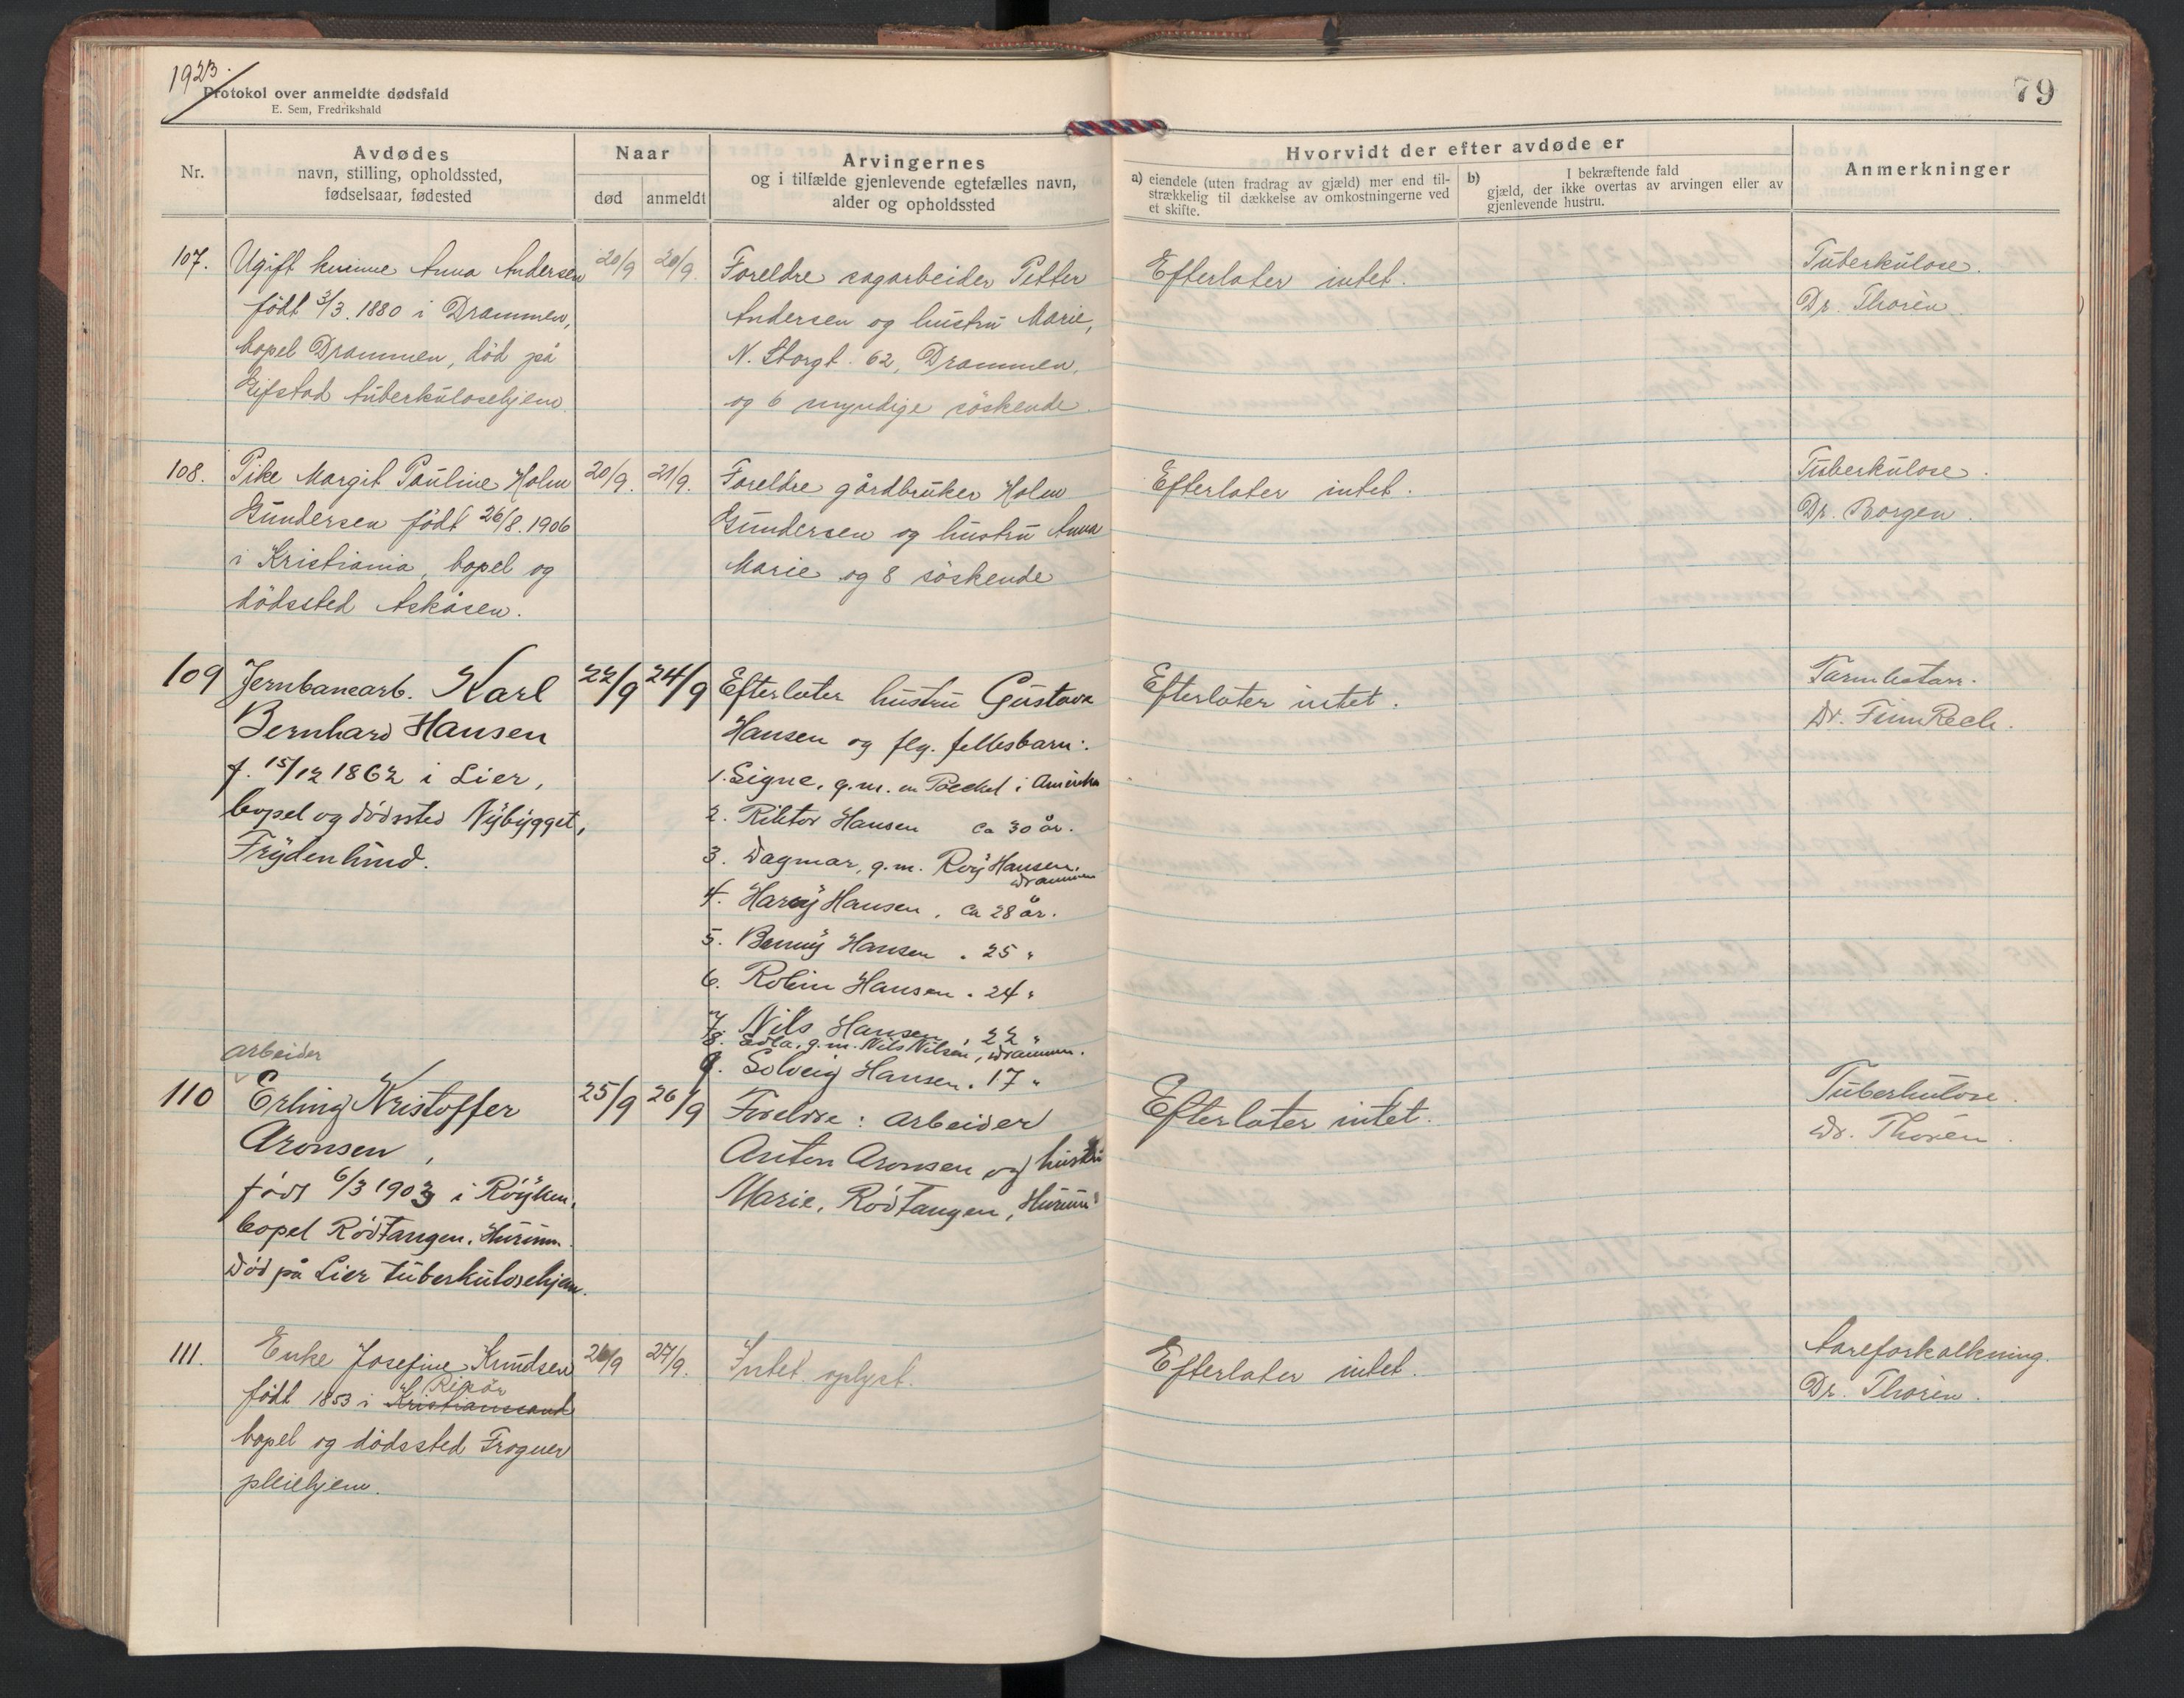 1923.
Protokol over anmeldte dødsfald
E. Sem, Fredrikshald
79
Nr.
Avdødes
navn, stilling, opholdssted,
fødselsaar, fødested
Naar
død
anmeldt
Arvingernes
og i tilfælde gjenlevende egtefælles navn,
alder og opholdssted
Hvorvidt der efter avdøde er
a) eiendele (uten fradrag av gjæld) mer end til-
strækkelig til dækkelse av omkostningerne ved
et skifte.
b) I bekræftende fald
gjæld, der ikke overtas av arvingen eller av
gjenlevende hustru.
Anmerkninger
107.
Ugift kvinne Anna Andersen
født 3/3. 1880 i Drammen,
bopel Drammen, død på
Eifstad tuberkulosehjem.
20/9
20/9.
Foreldre sagarbeider Petter
Andersen og hustru Marie,
N. Storgt. 62, Drammen,
og 6 myndige söskende.
Efterlater intet.
Tuberkulose.
Dr. Thorèn.
108.
Pike Margit Pauline Holm
Gundersen født 26/8. 1906
i Kristiania, bopel og
dödssted Askåsen.
20/9.
21/9.
Foreldre gårdbruker Holm
Gundersen og hustru Anna
Marie og 8 söskende
Efterlater intet.
Tuberkulose.
Dr. Borgen.
109
Jernbanearb. Karl
Bernhard Hansen
f. 15/12 1862 i Lier,
bopel og dödssted Nybygget,
Frydenlund.
22/9
24/9
Efterlater hustru Gustava
Hansen og flg. fellesbarn:
1. Signe, g.m. en Paeckel i Amerika
2. Riktor Hansen ca 30 år.
3. Dagmar, g.m. Roy Hansen,
Drammen
4. Harry Hansen, ca 28 år.
5. Benny Hansen . 25 "
6. Robin Hansen . 24 "
7. Nils Hansen, 22 "
8. Edla, g.m. Nils Nilsen, Drammen.
9. Solveig Hansen . 17 "
Efterlater intet.
Tarmkatarr.
Dr. Finn
110
arbeider
Erling Kristoffer
Aronsen,
född 6/3 1903 i Röyken,
bopel Rödtangen, Hurum.
Död på Lier tuberkulosehjem.
25/9
26/9
Foreldre: arbeider
Anton Aronsen og hustru
Marie, Rödtangen, Hurum
Efterlater intet.
Tuberkulose.
Dr. Thorén.
111.
Enke Josefine Knudsen
født 1853 i Kristianssand
Risör
bopel og dödssted Frogner
pleiehjem.
26/9
27/9.
Intet oplyst.
Efterlater intet.
Aareforkalkning.
Dr. Thorèn.